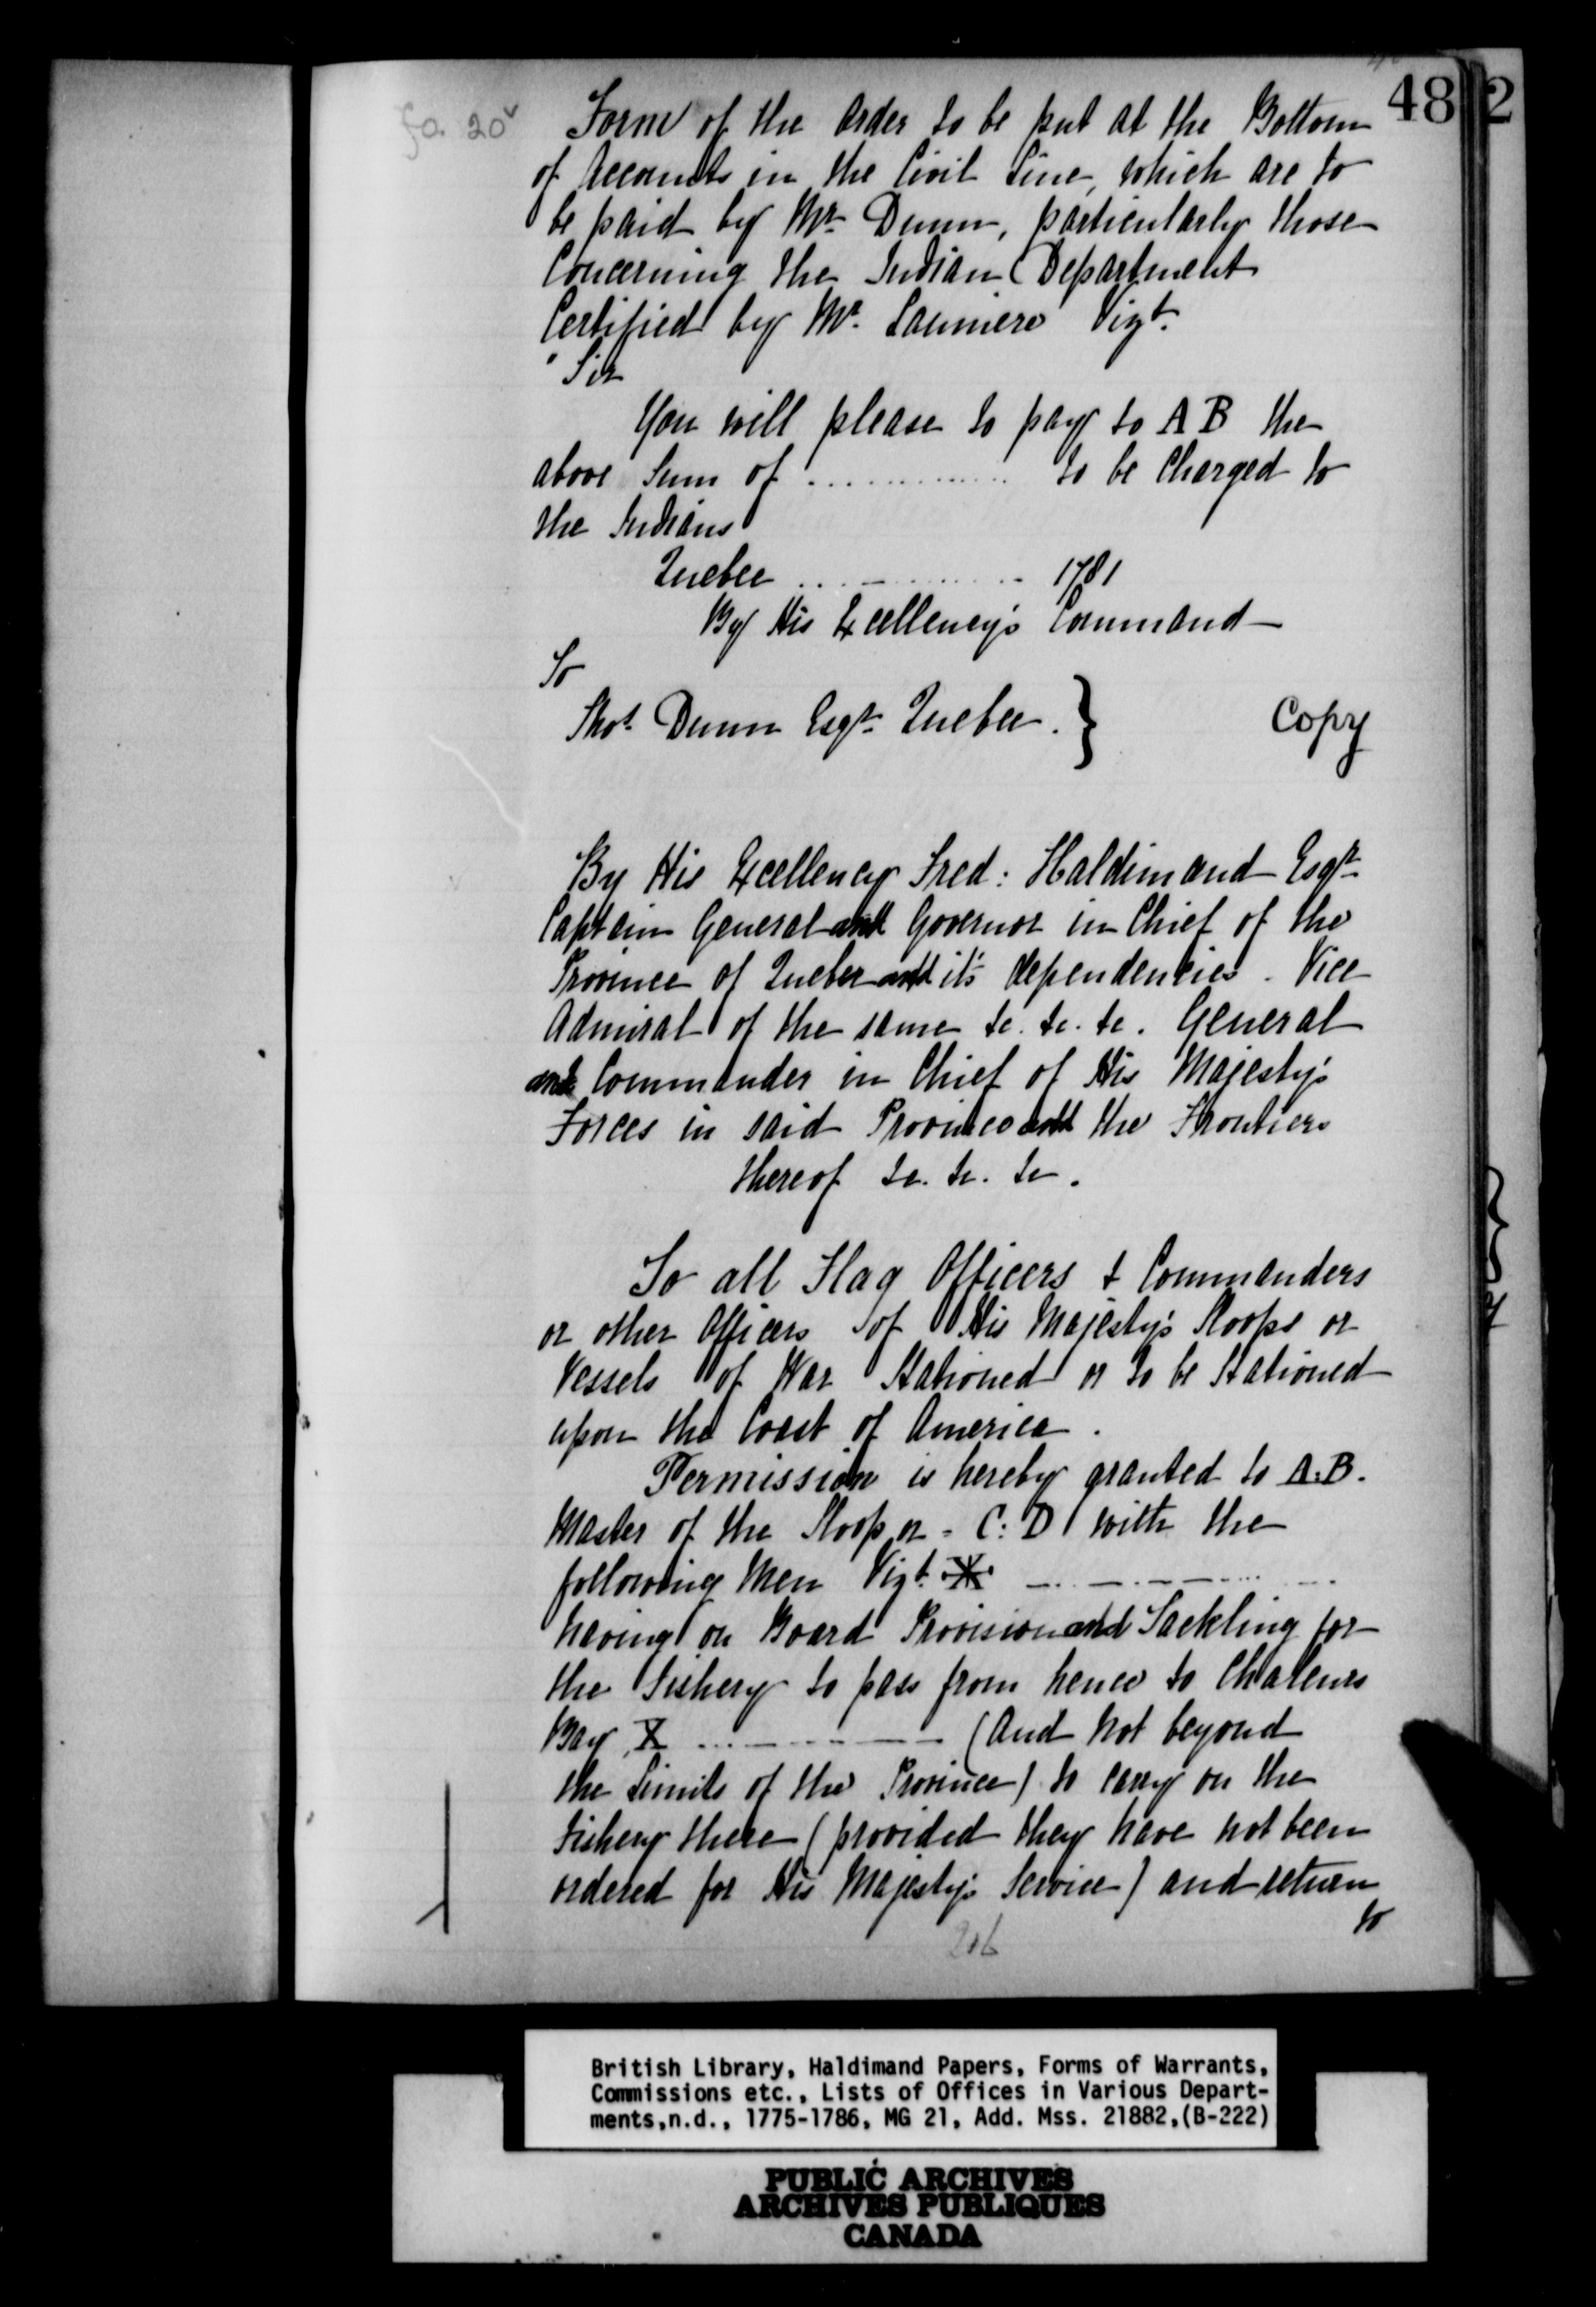 48
2
fo. 20v
Form of the Order to be put at the Bottom
of Accounts in the Civil Line, which are to
be paid by Mr Dunn, particularly those
Concerning the Indian Department
Certified by Mr. Launiere Vizt.
"Sir
You will please to pay to A B the
above Sum of ............ to be Charged to
the Indians
Quebec ............ 1781
By His Excellency's Command
To
Thos. Dunn Esqr Quebec. }
Copy
By His Excellency Fred: Haldimand Esqr
Captain General and Governor in Chief of the
Province of Quebec and it's dependencies. Vice
Admiral of the same &c. &c. &c. General
and Commander in Chief of His Majesty's
Forces in said Province and the Frontiers
thereof &c. &c. &c.
To all Flag Officers & Commanders
or other Officers of His Majesty's Sloops or
Vessels of War Stationed or to be Stationed
upon the Coast of America.
Permission is hereby granted to A.B.
Master of the Sloop or - C: D with the
following Men Vizt. * ............
having on Board Provision and Tackling for
the Fishery to pass from hence to Chaleurs
Bay, X ............ (and not beyond
the Limits of the Province) to carry on the
Fishery there (provided they have not been
ordered for His Majesty's Service) and return
to
206
British Library, Haldimand Papers, Forms of Warrants,
Commissions etc., Lists of Offices in Various Depart-
ments,n.d., 1775-1786, MG 21, Add. Mss. 21882,(B-222)
PUBLIC ARCHIVES
ARCHIVES PUBLIQUES
CANADA